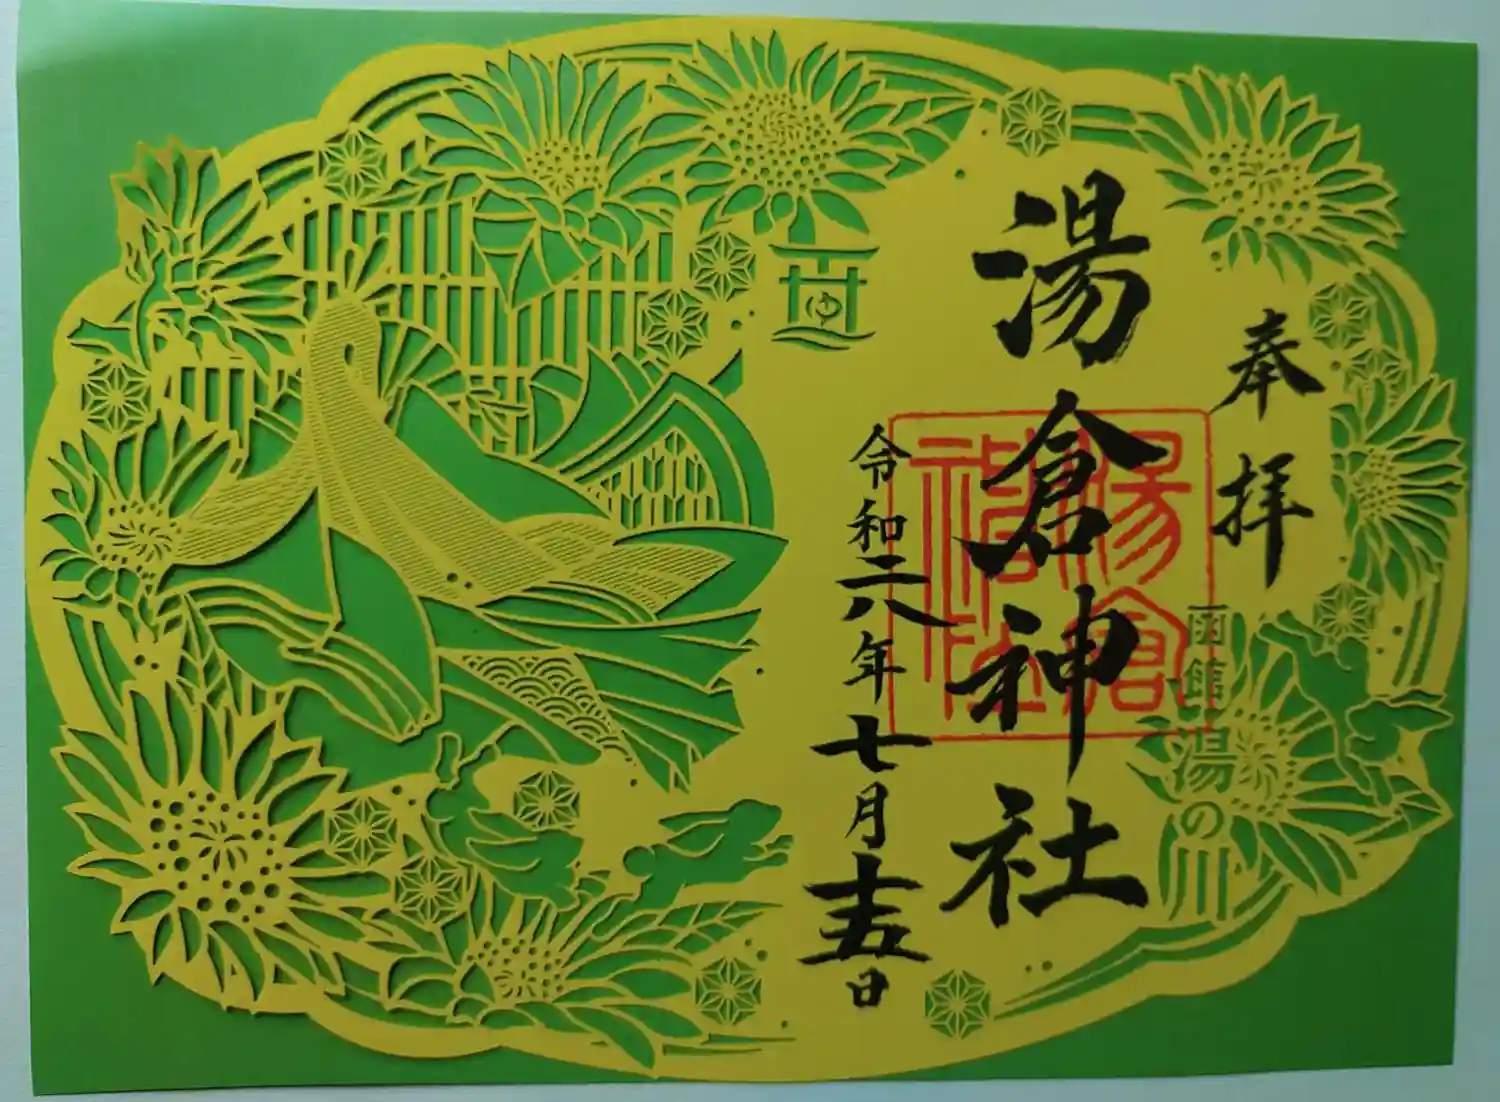 奉拝
湯倉神社
令和六年七月十五日
湯倉
神社
函館
湯の川
ゆ